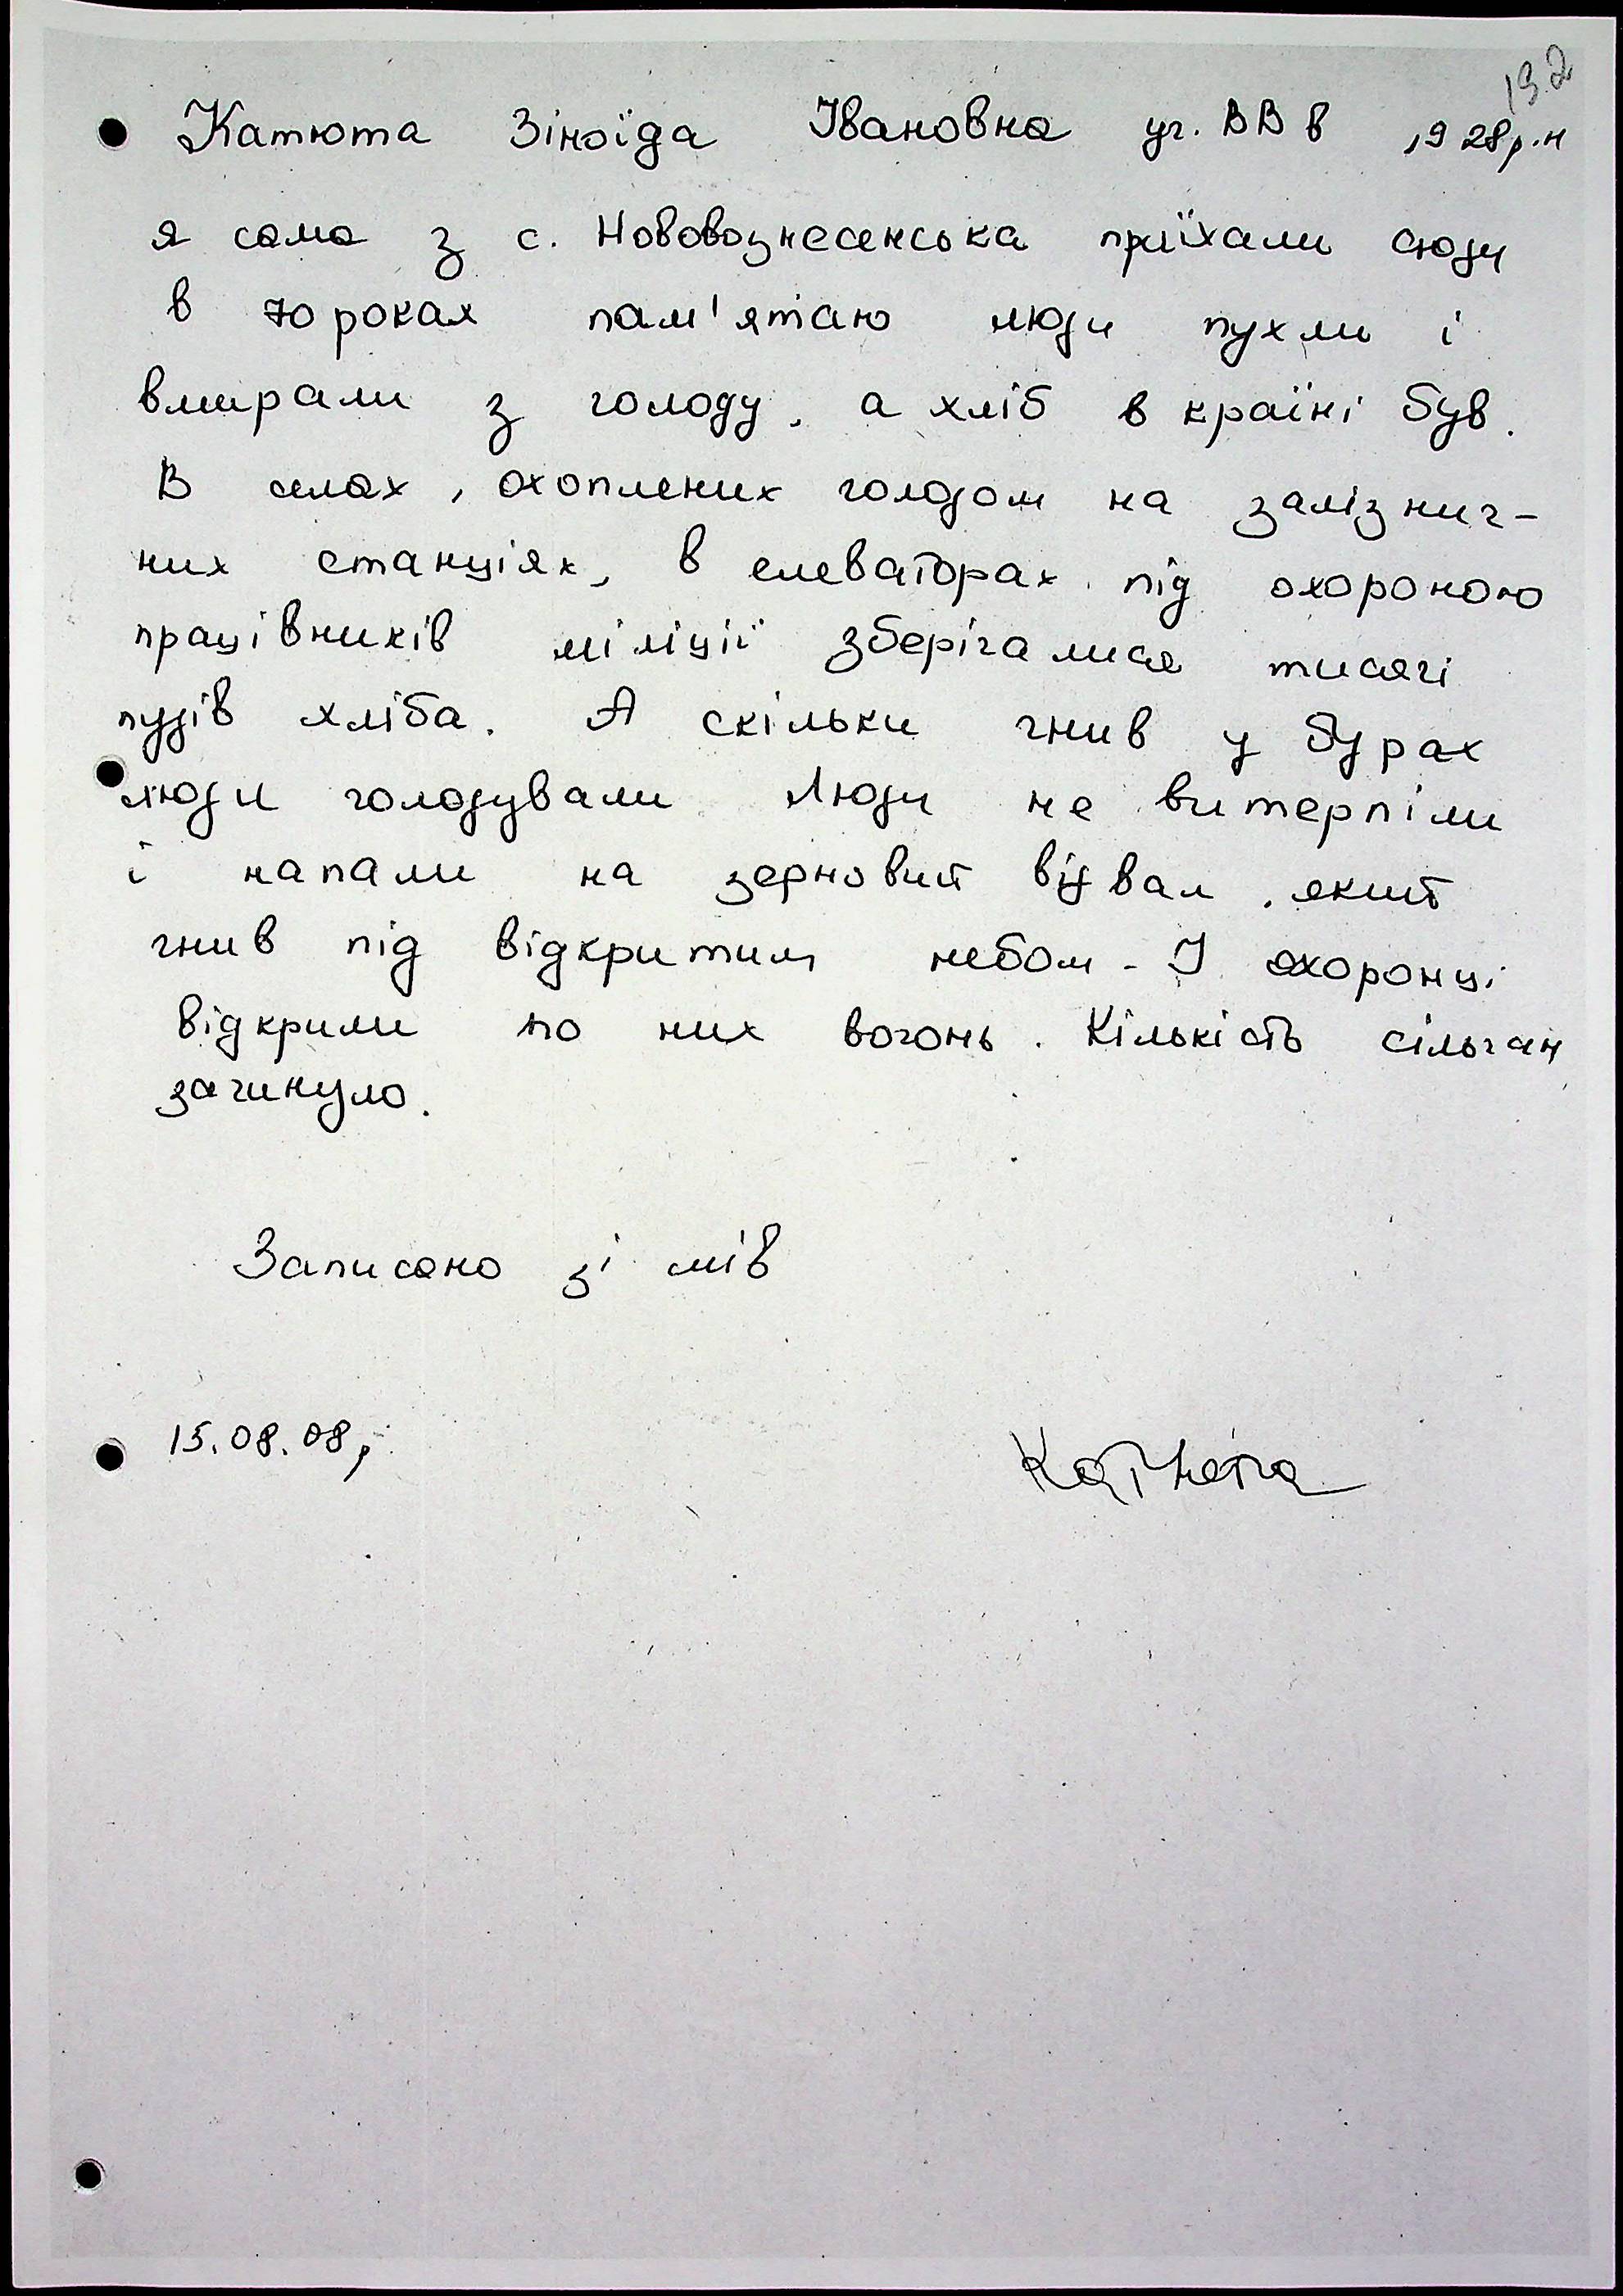 192
Катюта Зіноїда Івановна уч. ВВв 1928р.н
я сама з с. Нововознесенська приїхали сюди
в 70 роках пам'ятаю люди пухли і
вмирали з голоду, а хліб в країні був.
В селах, охоплених голодом на залізнич-
них станціях, в елеваторах під охороною
працівників міліції зберігалися тисячі
пудів хліба. А скільки гнив у бурах
люди голодували Люди не витерпіли
і напали на зерновий відвал, який
гнив під відкритим небом - І охоронці
відкрили по них вогонь. Кількість сільчан
загинуло.
Записано зі слів
15.08.08р
Катюта